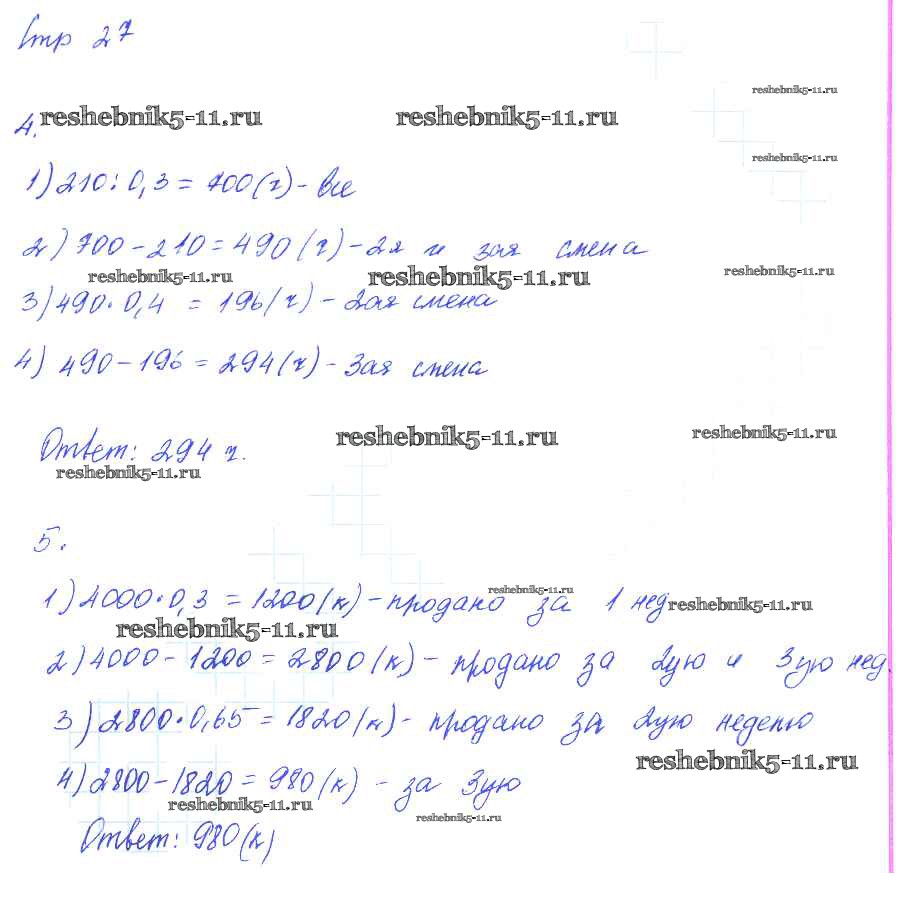 Стр 27
reshebnik5-11.ru
reshebnik5-11.ru
reshebnik5-11.ru
4.
reshebnik5-11.ru
1) 210 : 0,3 = 700 (г) - все
2) 700 - 210 = 490 (г) - 2я и 3ая смена
reshebnik5-11.ru
reshebnik5-11.ru
reshebnik5-11.ru
3) 490 · 0,4 = 196 (г) - 2ая смена
4) 490 - 196 = 294 (г) - 3ая смена
reshebnik5-11.ru
reshebnik5-11.ru
Ответ: 294 г.
reshebnik5-11.ru
5.
reshebnik5-11.ru
1) 4000 · 0,3 = 1200 (к) - продано за 1 нед
reshebnik5-11.ru
reshebnik5-11.ru
2) 4000 - 1200 = 2800 (к) - продано за 2ую и 3ую нед.
3) 2800 · 0,65 = 1820 (к) - продано за 2ую неделю
reshebnik5-11.ru
4) 2800 - 1820 = 980 (к) - за 3ую
reshebnik5-11.ru
reshebnik5-11.ru
Ответ: 980 (к)